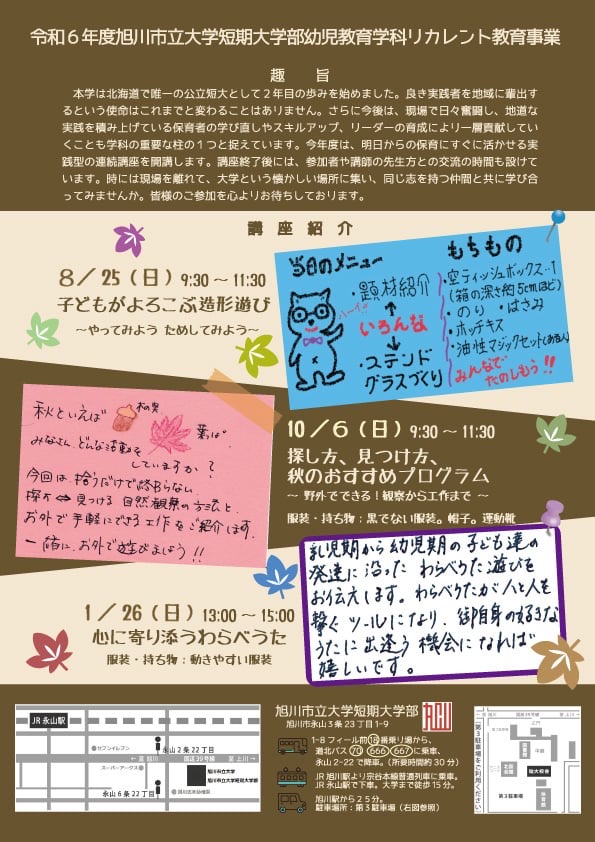 令和6年度旭川市立大学短期大学部幼児教育学科リカレント教育事業
趣 旨
本学は北海道で唯一の公立短大として2年目の歩みを始めました。良き実践者を地域に輩出す
るという使命はこれまでと変わることはありません。さらに今後は、現場で日々奮闘し、地道な
実践を積み上げている保育者の学び直しやスキルアップ、リーダーの育成により一層貢献してい
くことも学科の重要な柱の1つと捉えています。今年度は、明日からの保育にすぐに活かせる実
践型の連続講座を開講します。講座終了後には、参加者や講師の先生方との交流の時間も設けて
います。時には現場を離れて、大学という懐かしい場所に集い、同じ志を持つ仲間と共に学び合
ってみませんか。皆様のご参加を心よりお待ちしております。
講 座 紹 介
8/25(日) 9:30～11:30
子どもがよろこぶ造形遊び
～やってみよう ためしてみよう～
当日のメニュー
・題材紹介
いろんな
・ステンド
グラスづくり
もちもの
・空ティッシュボックス…1
(箱の深さ約5cmほど)
・のり ・はさみ
・ホッチキス
・油性マジックセット
みんなで
たのしもう!!
秋といえば 木の実
葉っぱ
みなさん、どんな活動を
していますか?
今回は、拾うだけで終わらない
探す⇔見つける 自然観察の方法と、
お外で手軽にできる工作をご紹介します。
一緒に、お外で遊びましょう!!
10/6(日) 9:30～11:30
探し方、見つけ方、
秋のおすすめプログラム
～ 野外でできる!観察から工作まで ～
服装・持ち物:黒でない服装。帽子。運動靴
乳児期から幼児期の子ども達の
発達に沿った わらべうた遊びを
お伝えします。わらべうたが人と人を
繋ぐツールになり、御自身の好きな
うたに出逢う機会になれば
嬉しいです。
1/26(日) 13:00～15:00
心に寄り添うわらべうた
服装・持ち物:動きやすい服装
JR 永山駅
セブンイレブン
永山2条22丁目
← 至 旭川 国道39号線 至 上川 →
スーパーアークス
旭川市立大学
旭川市立大学短期大学部
永山6条22丁目
旭川市立大学短期大学部
旭川市永山3条23丁目1-9
1-8 フィール前⑱番乗り場から、
道北バス 70 666 667 に乗車、
永山2-22で降車。(所要時間約30分)
JR 旭川駅より宗谷本線普通列車に乗車。
JR 永山駅で下車。大学まで徒歩15分。
旭川駅から25分。
駐車場所:第3駐車場(右図参照)
第3駐車場をご利用ください
← 至 旭川 国道39号線 至 上川 →
正門
中庭
短大校舎
第3駐車場